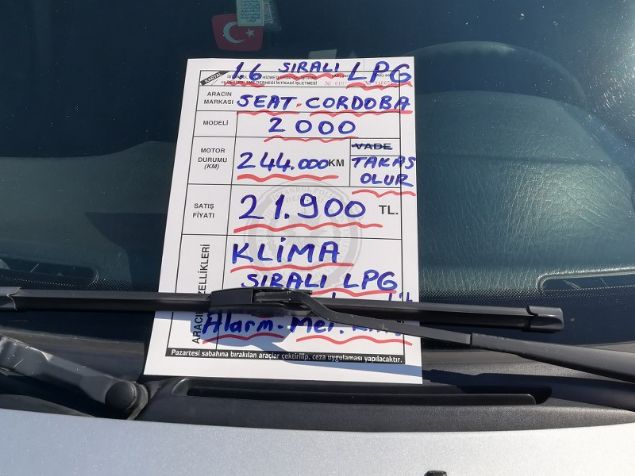 SATILIK
1.6 SIRALI LPG
ARACIN MARKASI SEAT. CORDOBA
MODELİ 2000
MOTOR DURUMU (KM) 244.000 KM VADE TAKAS OLUR
SATIŞ FİYATI 21.900 TL.
KLİMA
SIRALI LPG
Alarm. Mer.
Pazartesi sabahına bırakılan araçlar çektirilip, ceza uygulaması yapılacaktır.